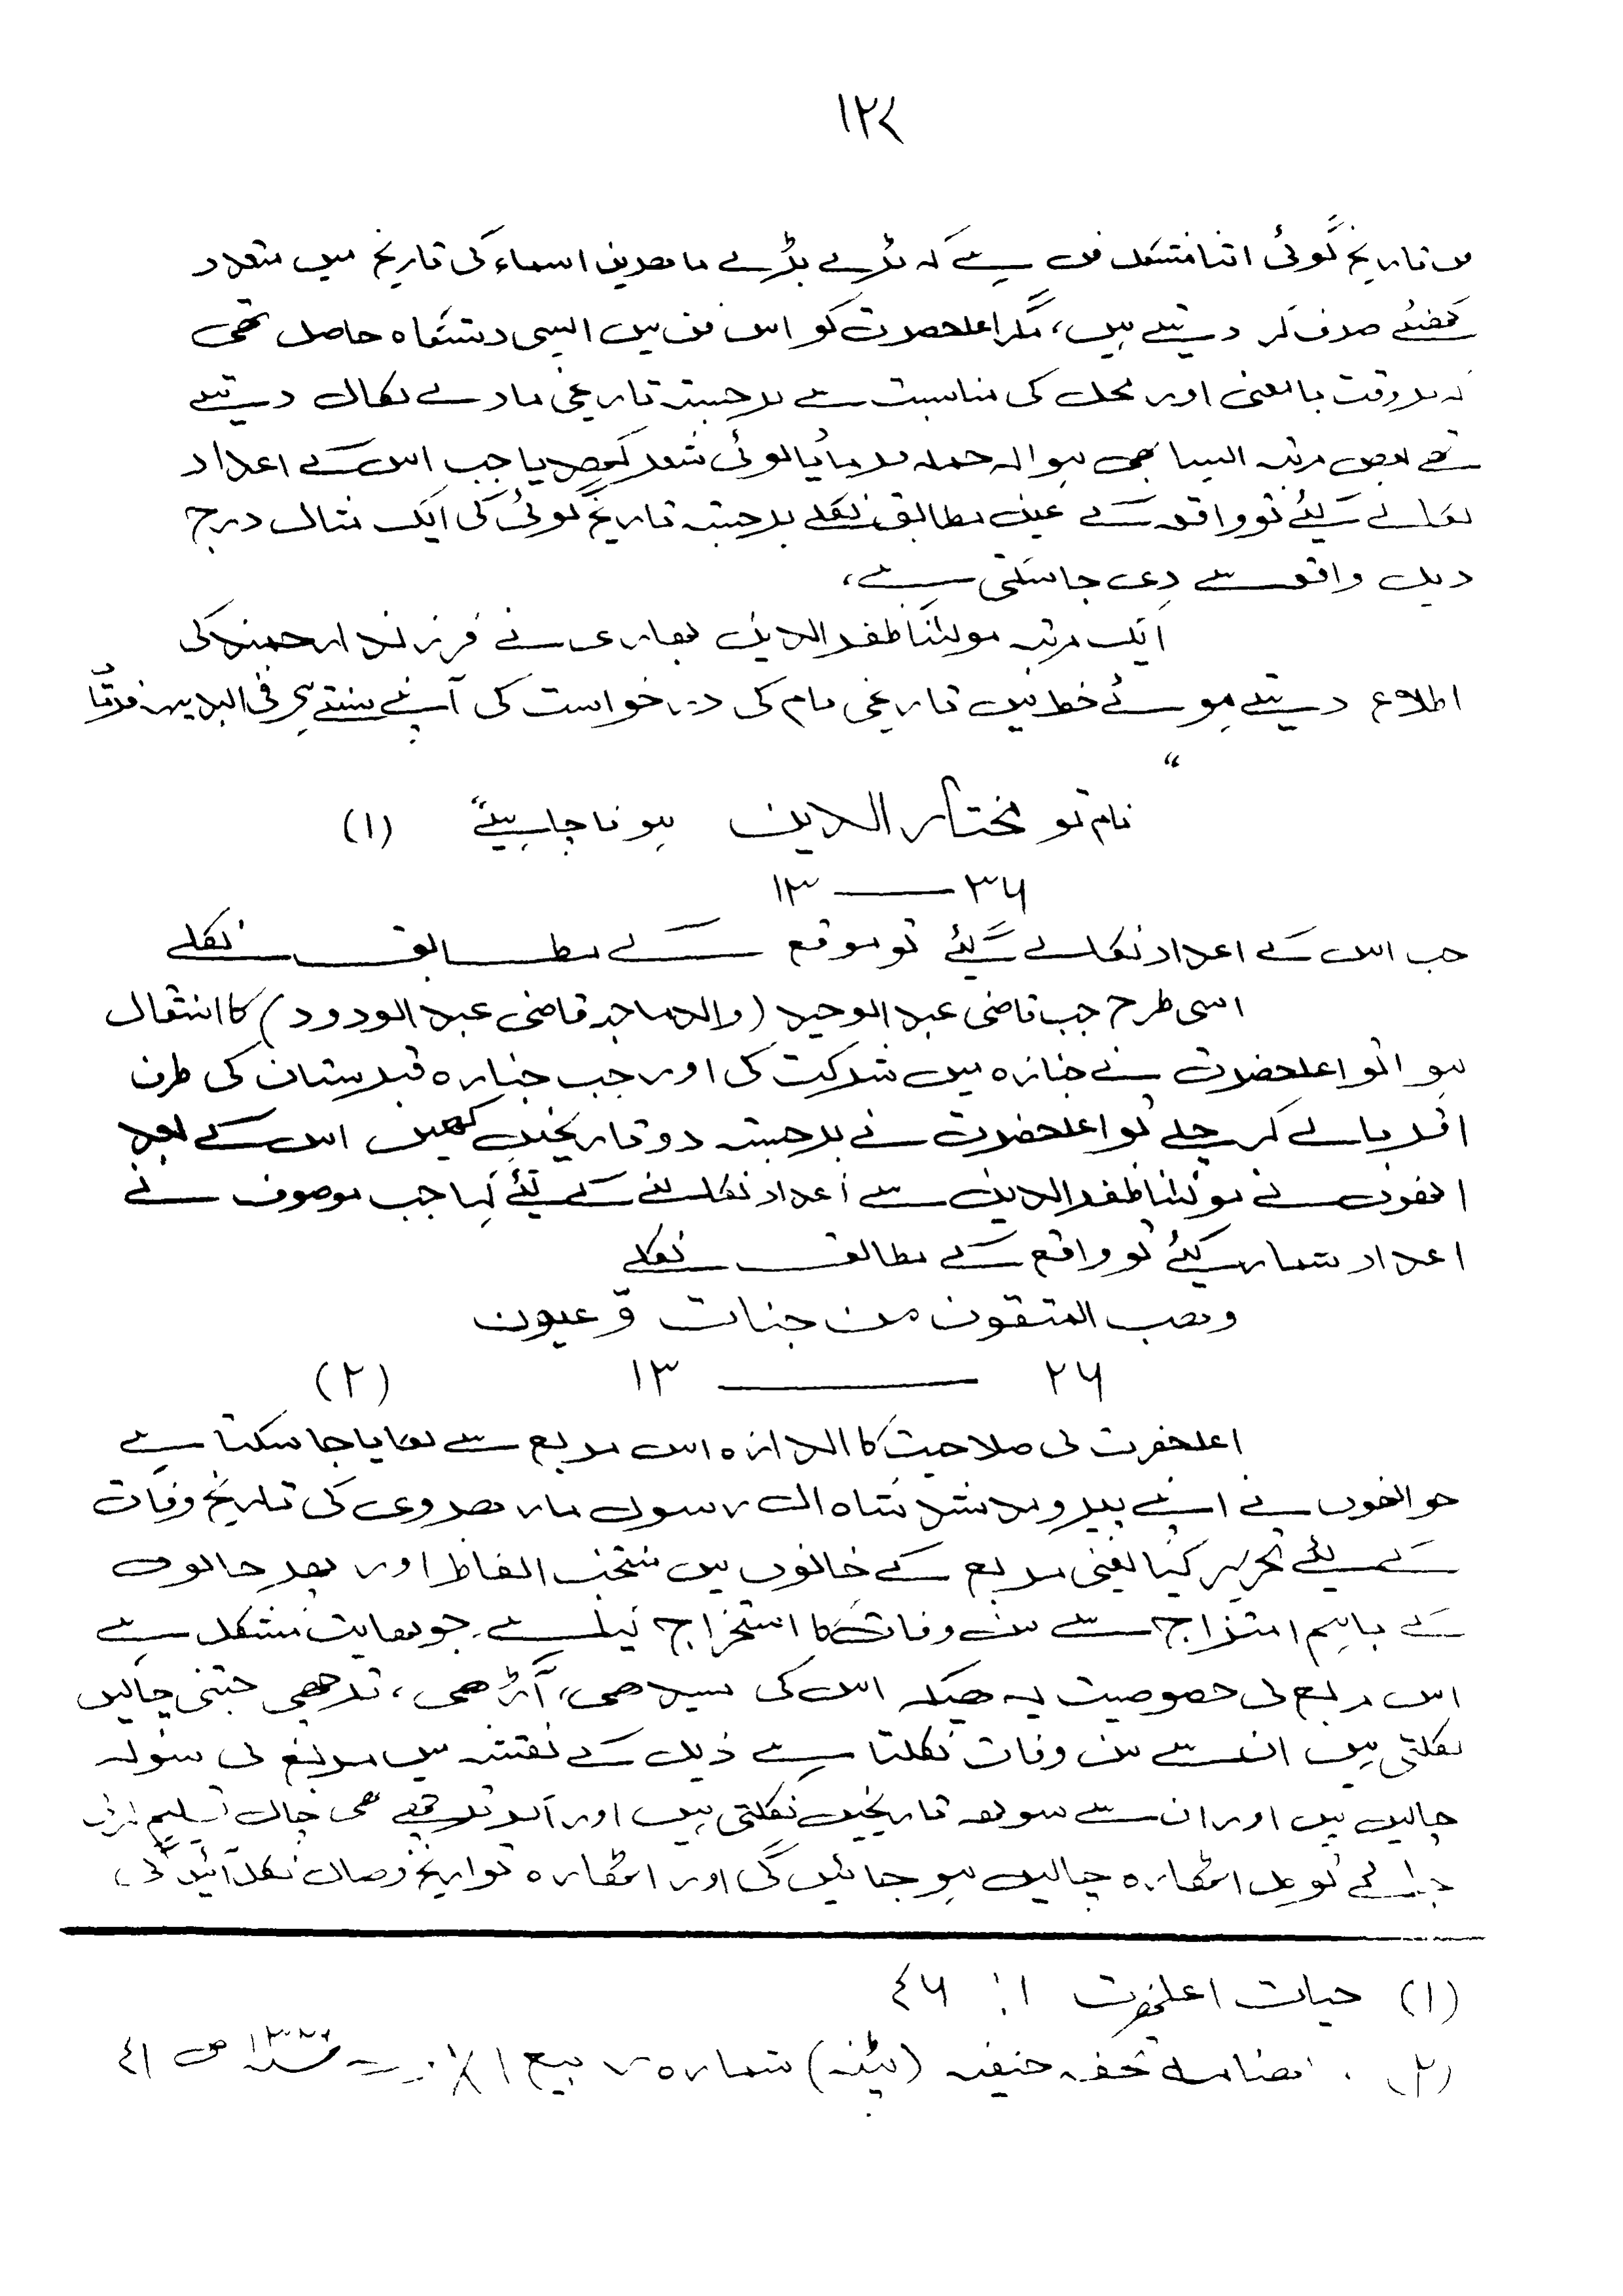 ۱۲۴
فن تاریخ گوئی اتنا مشکل فن ہے کہ بڑے بڑے ماہرین اسماء کی تاریخ میں متعدد
گھنٹے صرف کر دیتے ہیں، مگر اعلحضرت کو اس فن میں ایسی دستگاہ حاصل تھی
کہ بر وقت بامعنی اور محل کی مناسبت سے برجستہ تاریخی مادے نکال دیتے
تھے بعض مرتبہ ایسا بھی ہوا کہ جملہ فرمایا یا کوئی شعر لکھدیا جب اس کے اعداد
نکالے گئے تو واقعہ کے عین مطابق نکلے برجستہ تاریخ گوئی کی ایک مثال درج
ذیل واقعہ سے دی جاسکتی ہے،
ایک مرتبہ مولٰنا ظفر الدین بہاری نے فرزند ارجمند کی
اطلاع دیتے ہوئے خط میں تاریخی نام کی درخواست کی آپ نے سنتے ہی فی البدیہہ فرمایا
"
نام تو مختار الدین ہونا چاہیئے" (۱)
۱۳ ــــ ۳۶
جب اس کے اعداد نکالے گئے تو موقع کے مطابق نکلے
اسی طرح جب قاضی عبد الوحید (والد ماجد قاضی عبد الودود) کا انتقال
ہوا تو اعلحضرت نے جنازہ میں شرکت کی اور جب جنازہ قبرستان کی طرف
اقربا لے کر چلے تو اعلحضرت نے برجستہ دو تاریخیں کہیں اس کے بعد
انھوں نے مولٰنا ظفر الدین سے اعداد نکالنے کے لئے کہا جب موصوف نے
اعداد شمار کئے تو واقع کے مطابق نکلے
وہب المتقون من جنات وّ عیون
۱۳ ــــ ۲۶ (۲)
اعلحضرت کی صلاحیت کا اندازہ اس مربع سے لگایا جا سکتا ہے
جو انھوں نے اپنے پیر و مرشد شاہ آل رسول مارہروی کی تاریخ وفات
کے لئے تحریر کیا یعنی مربع کے خانوں میں منتخب الفاظ اور پھر خانوں
کے باہم امتزاج سے سن وفات کا استخراج کیا ہے۔ جو نہایت مشکل ہے
اس مربع کی خصوصیت یہ ھیکہ اس کی سیدھی، آڑھی، ترچھی جتنی چالیں
نکلتی ہیں ان سے سن وفات نکلتا ہے ذیل کے نقشہ میں مربع کی سولہ
چالیں ہیں اور ان سے سولہ تاریخیں نکلتی ہیں اور اگر ترچھے بھی چال تسلیم کرلی
جائے تو کل اٹھارہ چالیں ہو جائیں گی اور اٹھارہ تواریخ وصال نکل آئیں گی،
(۱) حیات اعلحضرت ۱: ۴۶
(۲) ماہنامہ تحفہ حنفیہ (پٹنہ) شمارہ ربیع ص ۴۱